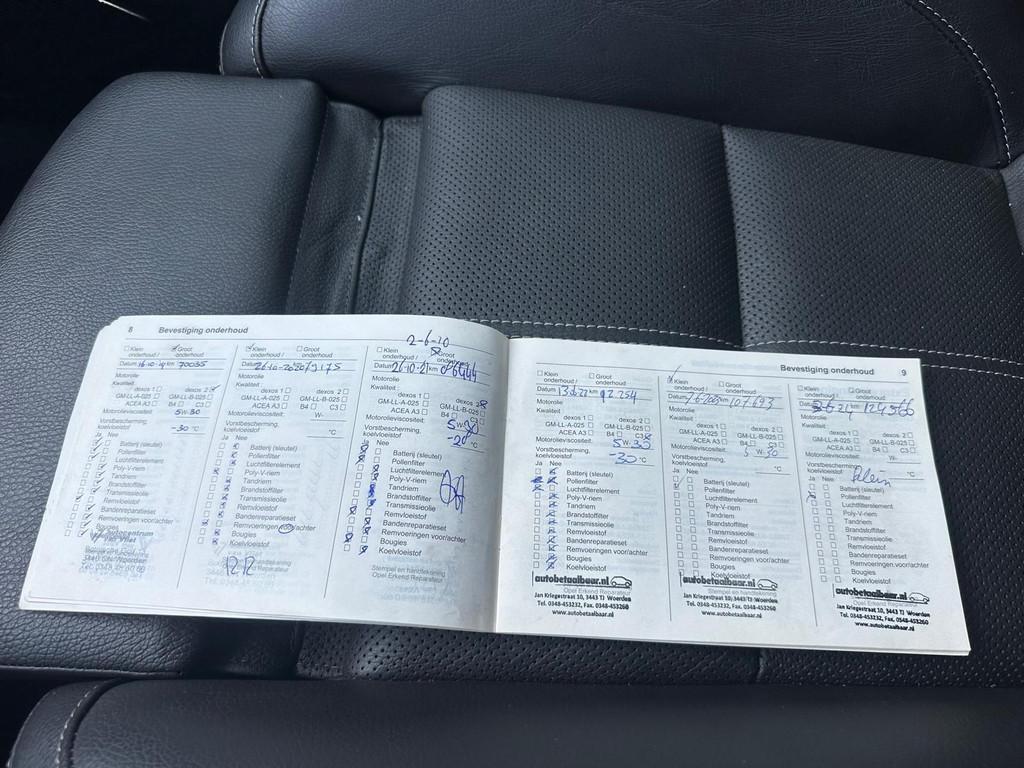 8 Bevestiging onderhoud
Klein onderhoud / Groot onderhoud
Datum 16-10-19 km 70035
Motorolie
Kwaliteit
dexos 1 dexos 2
GM-LL-A-025 GM-LL-B-025
ACEA A3 B4 C3
Motorolieviscositeit: 5W-30
Vorstbescherming, koelvloeistof -30 °C
Ja Nee
Batterij (sleutel)
Pollenfilter
Luchtfilterelement
Poly-V-riem
Tandriem
Brandstoffilter
Transmissieolie
Remvloeistof
Bandenreparatieset
Remvoeringen voor/achter
Bougies
Autocentrum
Klein onderhoud / Groot onderhoud
Datum 26-10-2020
Motorolie
Kwaliteit:
dexos 1 dexos 2
GM-LL-A-025 GM-LL-B-025
ACEA A3 B4 C3
Motorolieviscositeit: W-
Vorstbescherming, koelvloeistof °C
Ja Nee
Batterij (sleutel)
Pollenfilter
Luchtfilterelement
Poly-V-riem
Tandriem
Brandstoffilter
Transmissieolie
Remvloeistof
Bandenreparatieset
Remvoeringen voor/achter
Bougies
Koelvloeistof
2-6-20
Klein onderhoud / Groot onderhoud
Datum 26-10-21 km
Motorolie
Kwaliteit:
dexos 1 dexos 2
GM-LL-A-025 GM-LL-B-025
ACEA A3 B4 C3
Motorolieviscositeit:
Vorstbescherming, koelvloeistof -20 °C
Ja Nee
Batterij (sleutel)
Pollenfilter
Luchtfilterelement
Poly-V-riem
Tandriem
Brandstoffilter
Transmissieolie
Remvloeistof
Bandenreparatieset
Remvoeringen voor/achter
Bougies
Koelvloeistof
Stempel en handtekening
Opel Erkend Reparateur
Bevestiging onderhoud 9
Klein onderhoud / Groot onderhoud
Datum 13-6-22 km 92.254
Motorolie
Kwaliteit:
dexos 1 dexos 2
GM-LL-A-025 GM-LL-B-025
ACEA A3 B4 C3
Motorolieviscositeit: 5 W-
Vorstbescherming, koelvloeistof -30 °C
Ja Nee
Batterij (sleutel)
Pollenfilter
Luchtfilterelement
Poly-V-riem
Tandriem
Brandstoffilter
Transmissieolie
Remvloeistof
Bandenreparatieset
Remvoeringen voor/achter
Bougies
Koelvloeistof
autobetaalbaar.nl
Opel Erkend Reparateur
Jan Kriegestraat 10, 3443 TJ Woerden
Tel. 0348-453232, Fax. 0348-453260
www.autobetaalbaar.nl
Klein onderhoud / Groot onderhoud
Datum 1-6-2023 km 107693
Motorolie
Kwaliteit:
dexos 1 dexos 2
GM-LL-A-025 GM-LL-B-025
ACEA A3 B4 C3
Motorolieviscositeit: 5 W-30
Vorstbescherming, koelvloeistof °C
Ja Nee
Batterij (sleutel)
Pollenfilter
Luchtfilterelement
Poly-V-riem
Tandriem
Brandstoffilter
Transmissieolie
Remvloeistof
Bandenreparatieset
Remvoeringen voor/achter
Bougies
Koelvloeistof
autobetaalbaar.nl
Opel Erkend Reparateur
Jan Kriegestraat 10, 3443 TJ Woerden
Tel. 0348-453232, Fax. 0348-453260
www.autobetaalbaar.nl
Klein onderhoud / Groot onderhoud
Datum 124566
Motorolie
Kwaliteit:
dexos 1 dexos 2
GM-LL-A-025 GM-LL-B-025
ACEA A3 B4 C3
Motorolieviscositeit: W-
Vorstbescherming, koelvloeistof °C
Klein
Ja Nee
Batterij (sleutel)
Pollenfilter
Luchtfilterelement
Poly-V-riem
Tandriem
Brandstoffilter
Transmissieolie
Remvloeistof
Bandenreparatieset
Remvoeringen voor/achter
Bougies
Koelvloeistof
autobetaalbaar.nl
Opel Erkend Reparateur
Jan Kriegestraat 10, 3443 TJ Woerden
Tel. 0348-453232, Fax. 0348-453260
www.autobetaalbaar.nl